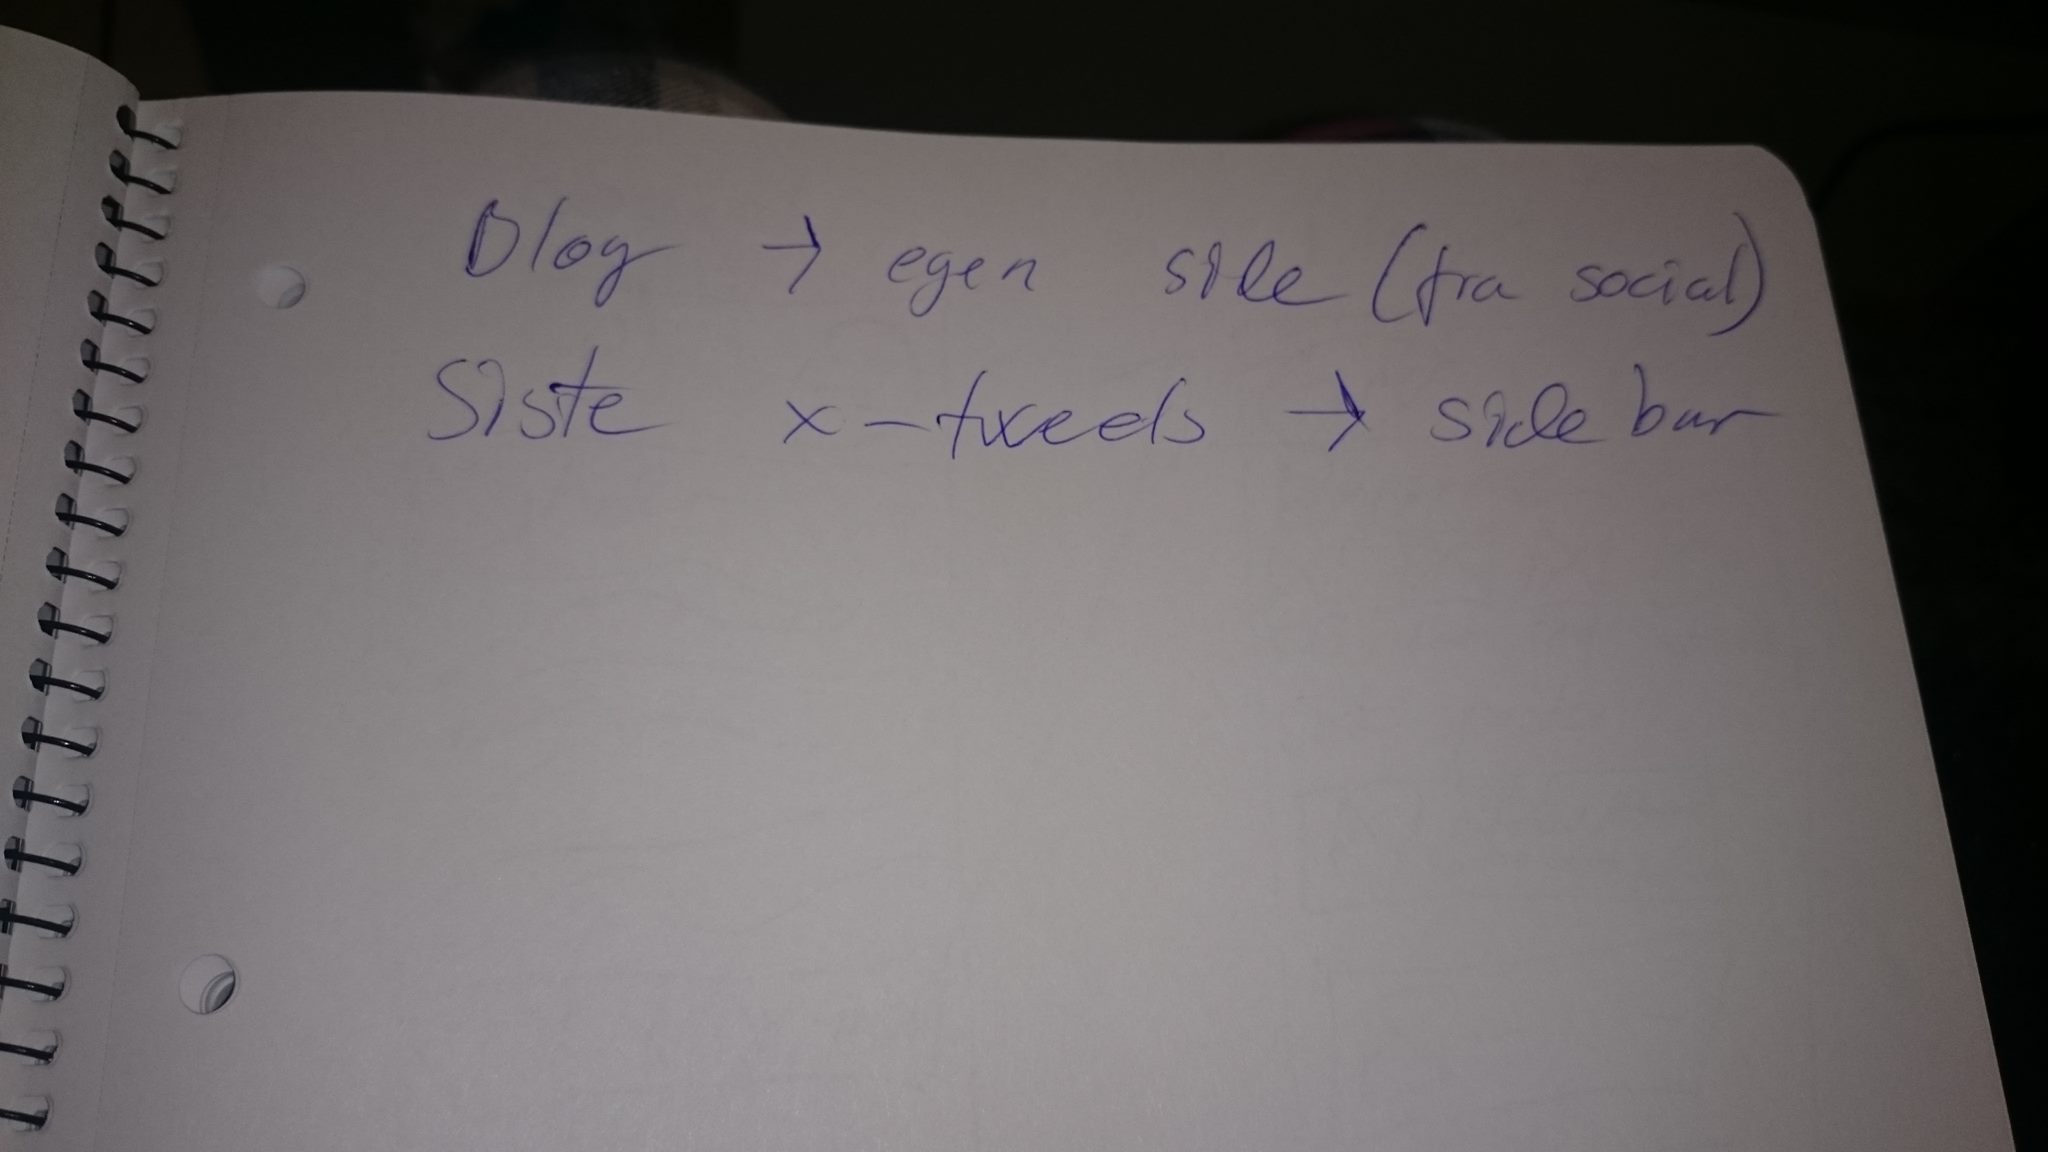 Blog → egen side (fra social)
Siste x-tweets → sidebar